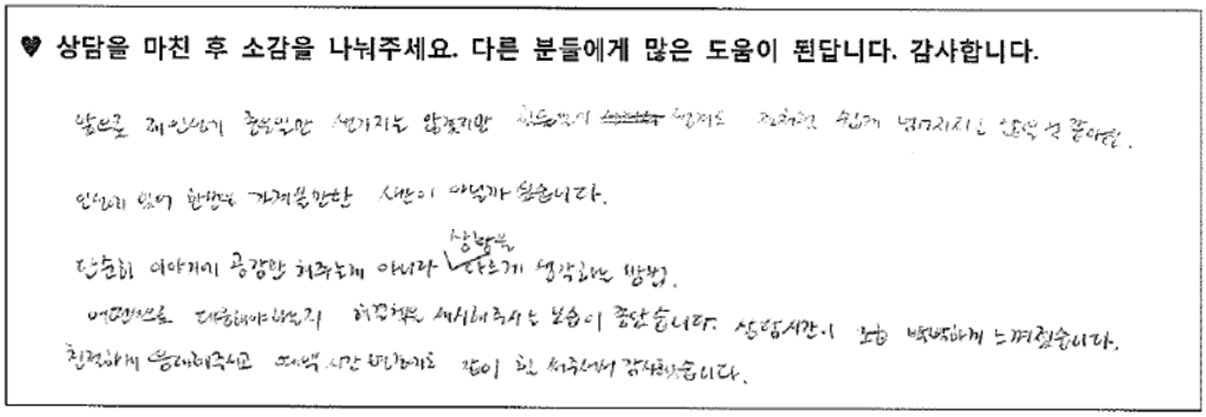 ♥ 상담을 마친 후 소감을 나눠주세요. 다른 분들에게 많은 도움이 된답니다. 감사합니다.
앞으로 제 인생에 좋은일만 생기지는 않겠지만 쉽게
인생에 있어 한번쯤 가져볼만한 시간이 아닐까 싶습니다.
단순히 이야기에 공감만 해주는게 아니라 상황을 다르게 생각하는 방법,
어떤식으로 대응해야하는지 해결책을 제시해주시는 모습이 좋았습니다. 상담시간이 조금 빡빡하게 느껴졌습니다.
친절하게 응대해주시고 매번 시간 같이 힘 써주셔서 감사했습니다.